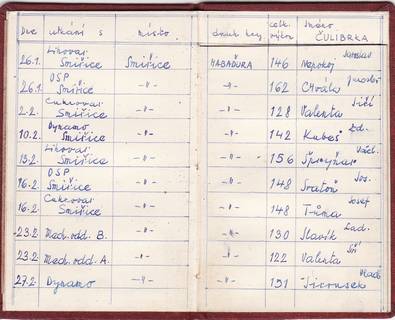 Dne utkání s místo druh hry celk. výkon jméno ČULIBRKA
26.1. Lihovar Smiřice Smiřice HABAĎŮRA 146 Nepokoj Jaroslav
26.1. OSP Smiřice -"- -"- 162 Chvála
2.2. Cukrovar Smiřice -"- -"- 128 Valenta Jiří
10.2. Dynamo Smiřice -"- -"- 142 Kubeš Zd.
13.2. Lihovar Smiřice -"- -"- 156 Václ.
16.2. OSP Smiřice -"- -"- 148 Jos.
16.2. Cukrovar Smiřice -"- -"- 148 Tůma Josef
23.2 Med. odd. B. -"- -"- 130 Slavík Lad.
23.2 Med. odd. A. -"- -"- 122 Valenta Jiří
27.2. Dynamo -"- -"- 151 Jirousek Vlad.